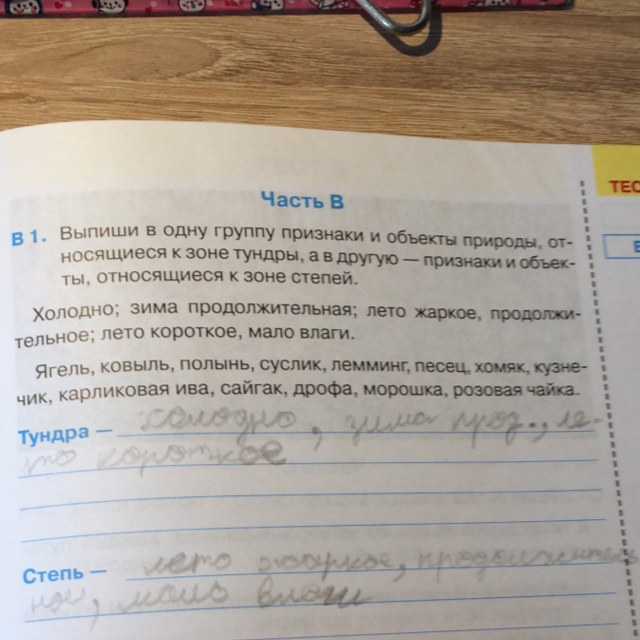 Часть В
ТЕС
В 1. Выпиши в одну группу признаки и объекты природы, от-
носящиеся к зоне тундры, а в другую — признаки и объек-
ты, относящиеся к зоне степей.
Холодно; зима продолжительная; лето жаркое, продолжи-
тельное; лето короткое, мало влаги.
Ягель, ковыль, полынь, суслик, лемминг, песец, хомяк, кузне-
чик, карликовая ива, сайгак, дрофа, морошка, розовая чайка.
Тундра — холодно, зима прод., ле-
то короткое
Степь — лето жаркое, продолжитель
ное, мало влаги